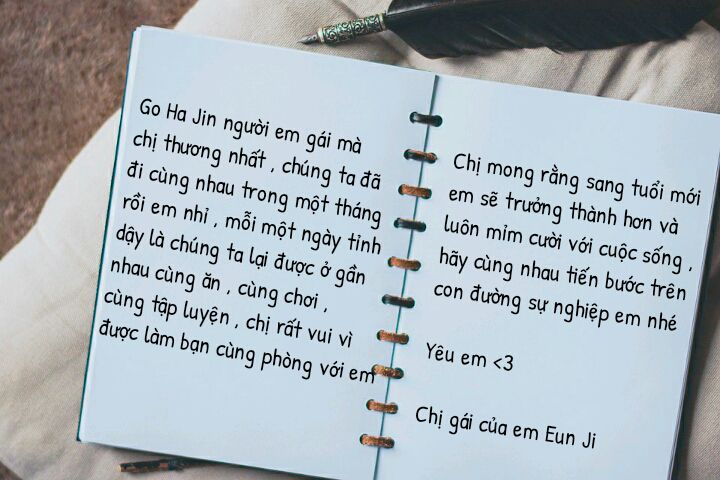 Go Ha Jin người em gái mà
chị thương nhất , chúng ta đã
đi cùng nhau trong một tháng
rồi em nhỉ , mỗi một ngày tỉnh
dậy là chúng ta lại được ở gần
nhau cùng ăn , cùng chơi ,
cùng tập luyện , chị rất vui vì
được làm bạn cùng phòng với em
Chị mong rằng sang tuổi mới
em sẽ trưởng thành hơn và
luôn mỉm cười với cuộc sống ,
hãy cùng nhau tiến bước trên
con đường sự nghiệp em nhé
Yêu em <3
Chị gái của em Eun Ji